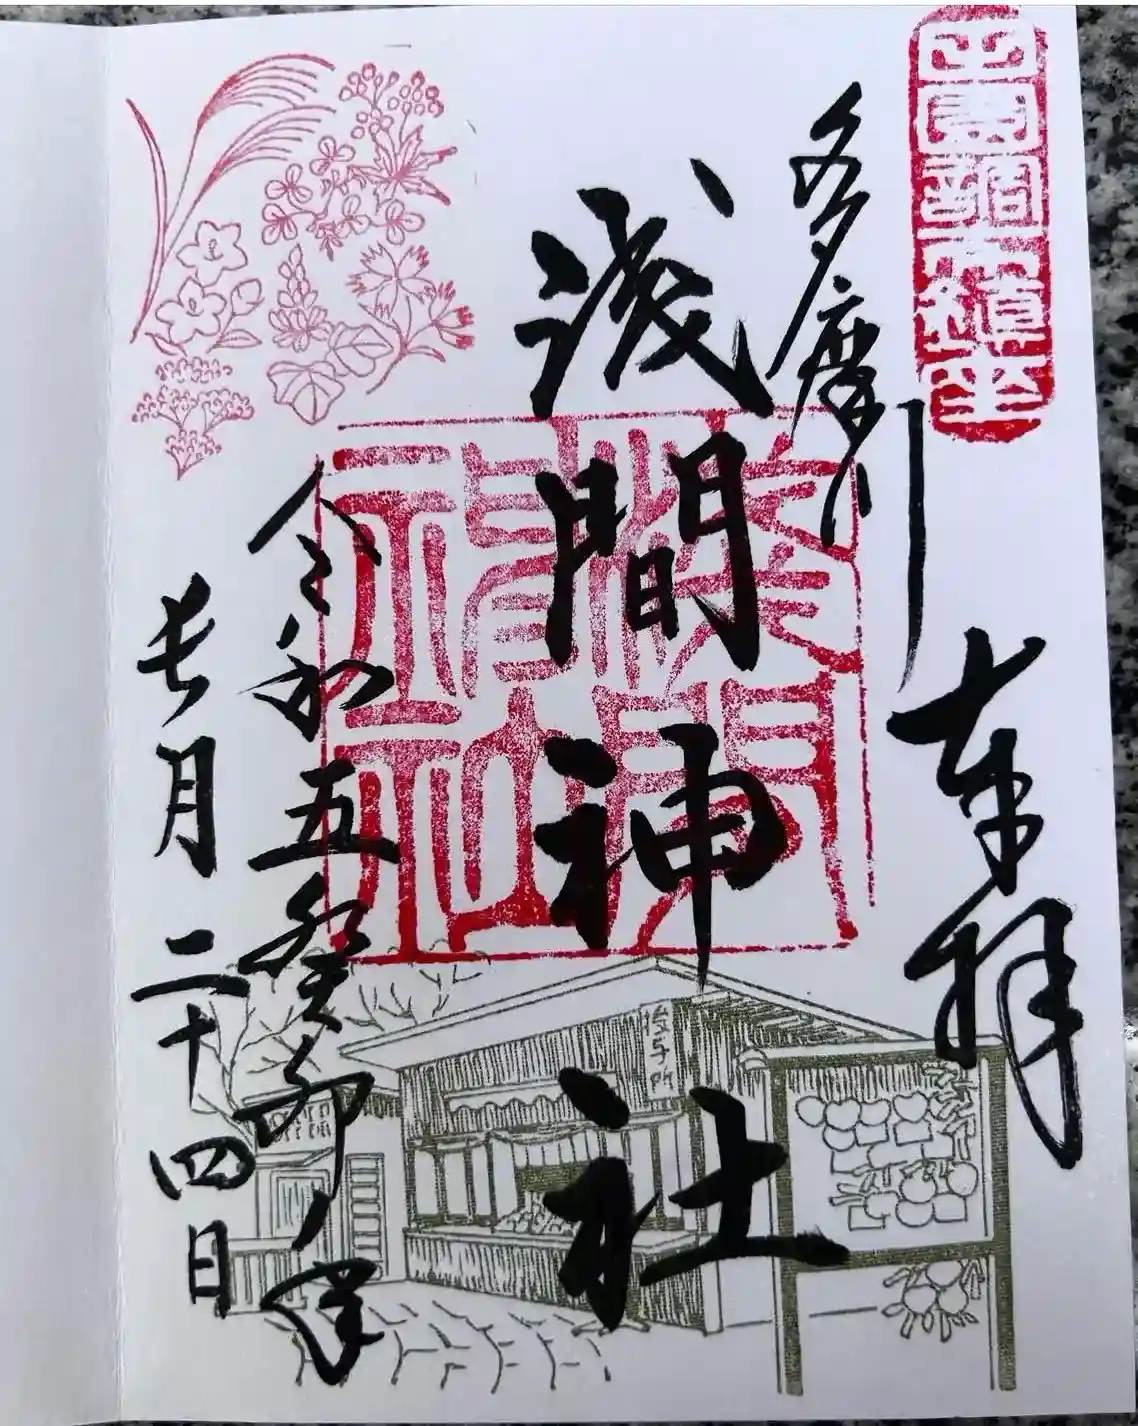 田園調布鎮座
奉拝
多摩川
浅間神社
淺間神社
令和五癸卯ノ年
長月二十四日
授与所